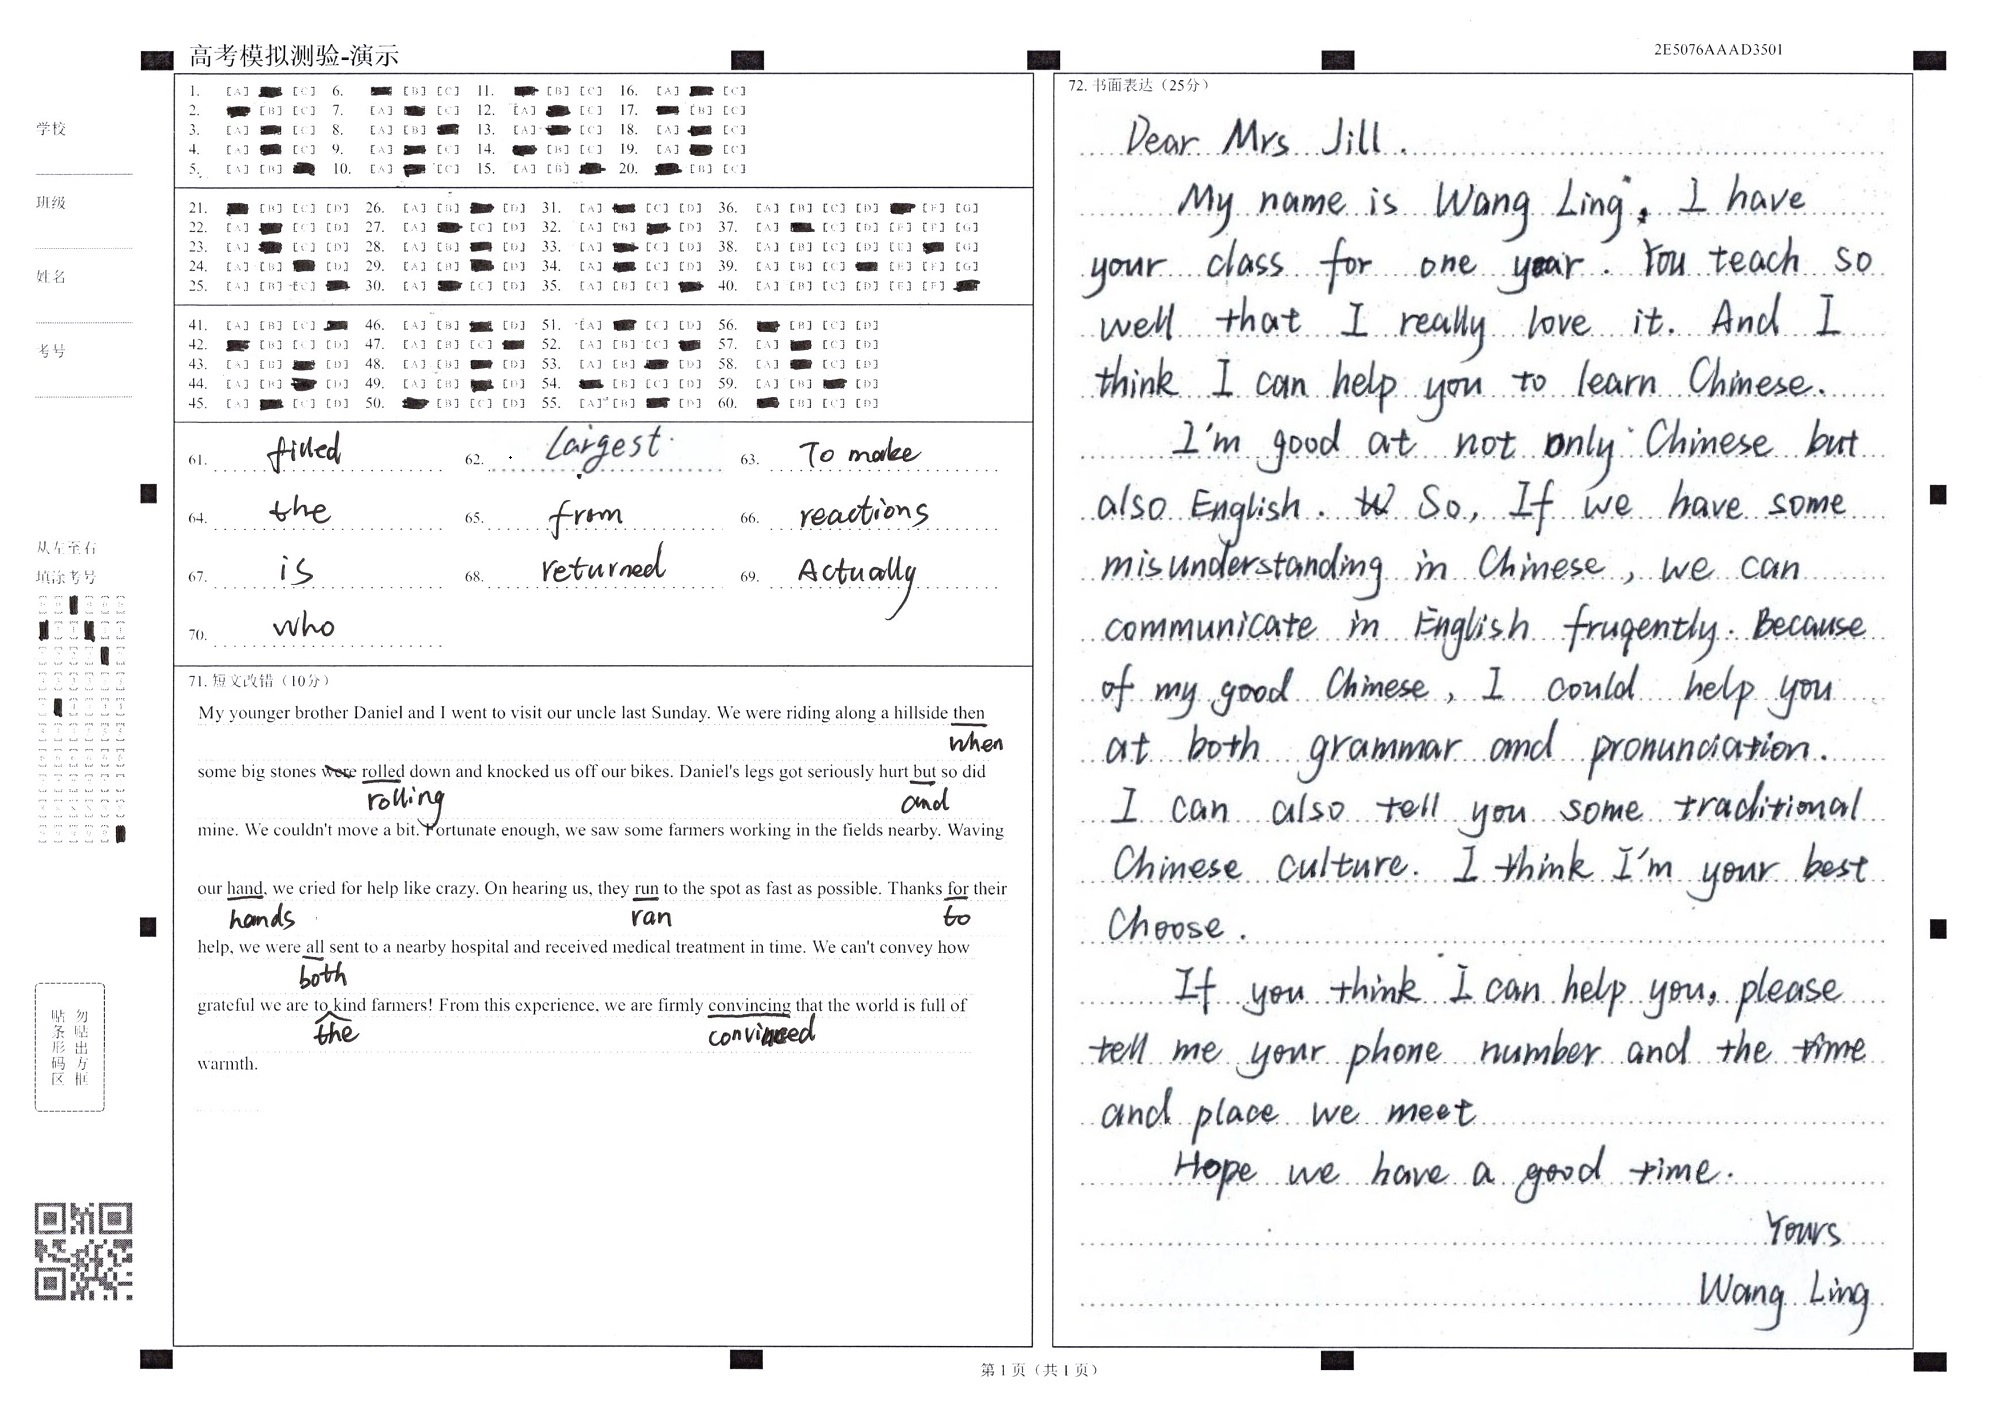 高考模拟测验-演示
2E5076AAAD3501
学校
班级
姓名
考号
从左至右
填涂考号
勿贴出方框
贴条形码区
1. [A] [C] 6. [B] [C] 11. [B] [C] 16. [A] [C]
2. [B] [C] 7. [A] [C] 12. [A] [C] 17. [B] [C]
3. [A] [C] 8. [A] [B] 13. [A] [C] 18. [A] [C]
4. [A] [C] 9. [A] [C] 14. [B] [C] 19. [A] [C]
5. [A] [B] 10. [A] [C] 15. [A] [B] 20. [B] [C]
21. [B] [C] [D] 26. [A] [B] [D] 31. [A] [C] [D] 36. [A] [B] [C] [D] [F] [G]
22. [A] [C] [D] 27. [A] [C] [D] 32. [A] [B] [D] 37. [A] [C] [D] [E] [F] [G]
23. [A] [C] [D] 28. [A] [B] [D] 33. [A] [C] [D] 38. [A] [B] [C] [D] [E] [G]
24. [A] [B] [D] 29. [A] [B] [D] 34. [A] [C] [D] 39. [A] [B] [C] [E] [F] [G]
25. [A] [B] [C] 30. [A] [C] [D] 35. [A] [B] [C] 40. [A] [B] [C] [D] [E] [F]
41. [A] [B] [C] 46. [A] [B] [D] 51. [A] [C] [D] 56. [B] [C] [D]
42. [B] [C] [D] 47. [A] [B] [C] 52. [A] [B] [C] 57. [A] [C] [D]
43. [A] [B] [D] 48. [A] [B] [D] 53. [A] [B] [D] 58. [A] [C] [D]
44. [A] [B] [D] 49. [A] [B] [D] 54. [B] [C] [D] 59. [A] [B] [D]
45. [A] [C] [D] 50. [B] [C] [D] 55. [A] [B] [D] 60. [B] [C] [D]
61. filled 62. Largest. 63. To make
64. the 65. from 66. reactions
67. is 68. returned 69. Actually
70. who
71. 短文改错（10分）
My younger brother Daniel and I went to visit our uncle last Sunday. We were riding along a hillside then
when
some big stones were rolled down and knocked us off our bikes. Daniel's legs got seriously hurt but so did
rolling and
mine. We couldn't move a bit. Fortunate enough, we saw some farmers working in the fields nearby. Waving
our hand, we cried for help like crazy. On hearing us, they run to the spot as fast as possible. Thanks for their
hands ran to
help, we were all sent to a nearby hospital and received medical treatment in time. We can't convey how
both
grateful we are to kind farmers! From this experience, we are firmly convincing that the world is full of
the convinced
warmth.
72. 书面表达（25分）
Dear Mrs Jill.
My name is Wang Ling. I have
your class for one year. You teach so
well that I really love it. And I
think I can help you to learn Chinese.
I'm good at not only Chinese but
also English. W So, If we have some
misunderstanding in Chinese, we can
communicate in English fruqently. Because
of my good Chinese, I could help you
at both grammar and pronunciation.
I can also tell you some traditional
Chinese culture. I think I'm your best
Choose.
If you think I can help you, please
tell me your phone number and the time
and place we meet
Hope we have a good time.
Yours
Wang Ling
第 1 页（共 1 页）